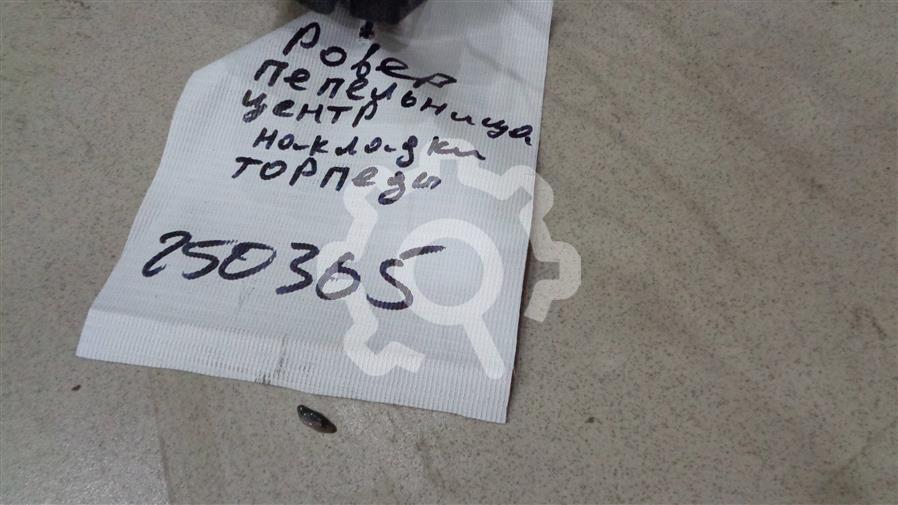 Ровер
пепельница
центр
накладки
торпеды
250365